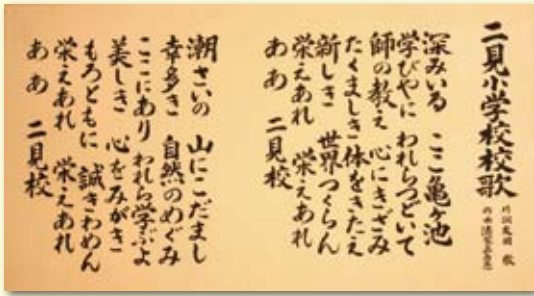 二見小学校校歌
深みいる ここ亀ヶ池
学びやに われらつどいて
師の教え 心にきざみ
たくましき体をきたえ
新しき 世界つくらん
栄えあれ 栄えあれ
ああ 二見校
潮さいの 山にこだまし
幸多き 自然のめぐみ
ここにあり われら学ぶよ
美しき 心をみがき
もろともに 誠きわめん
栄えあれ 栄えあれ
ああ 二見校